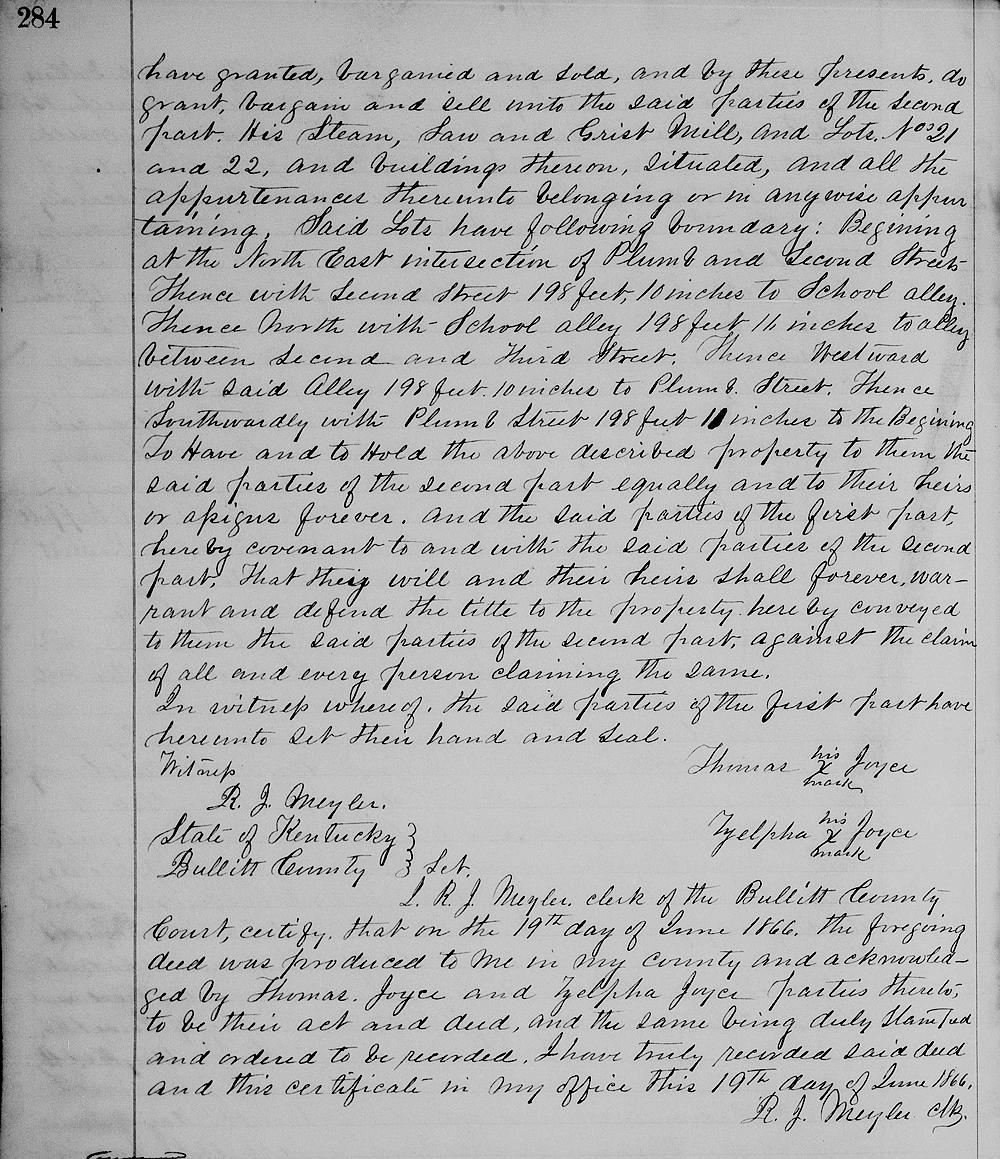 284
have granted, bargained and sold, and by these presents, do
grant, bargain and sell unto the said parties of the second
part. His Steam, Saw and Grist Mill, and Lots. Nos 21
and 22, and buildings thereon, situated, and all the
appurtenances thereunto belonging or in anywise appur
taining, Said Lots have following boundary: Begining
at the North East intersection of Plumb and Second Streets
Thence with Second Street 198 feet, 10 inches to School alley.
Thence North with School alley 198 feet 11 inches to alley
between Second and Third Street. Thence Westward
with said Alley 198 feet. 10 inches to Plumb. Street. Thence
Southwardly with Plumb Street 198 feet 11 inches to the Begining
To Have and to Hold the above described property to them the
said parties of the second part equally and to their heirs
or assigns forever. And the said parties of the first part,
hereby covenant to and with the said parties of the second
part. That they will and their heirs shall forever, war-
rant and defend the title to the property hereby conveyed
to them the said parties of the second part, against the claim
of all and every person claiming the same.
In witness whereof. the said parties of the first part have
hereunto set their hand and seal.
Witness
Thomas his x mark Joyce
R. J. Meyler.
State of Kentucky }
Zyelpha his x mark Joyce
Bullitt County } Sct.
I. R. J. Meyler. clerk of the Bullitt County
Court, certify. that on the 19th day of June 1866. the foregoing
deed was produced to me in my county and acknowled-
ged by Thomas. Joyce and Zyelpha Joyce parties thereto,
to be their act and deed, and the same being duly Stamped
and ordered to be recorded. I have truly recorded said deed
and this certificate in my office this 19th day of June 1866.
R. J. Meyler clk.